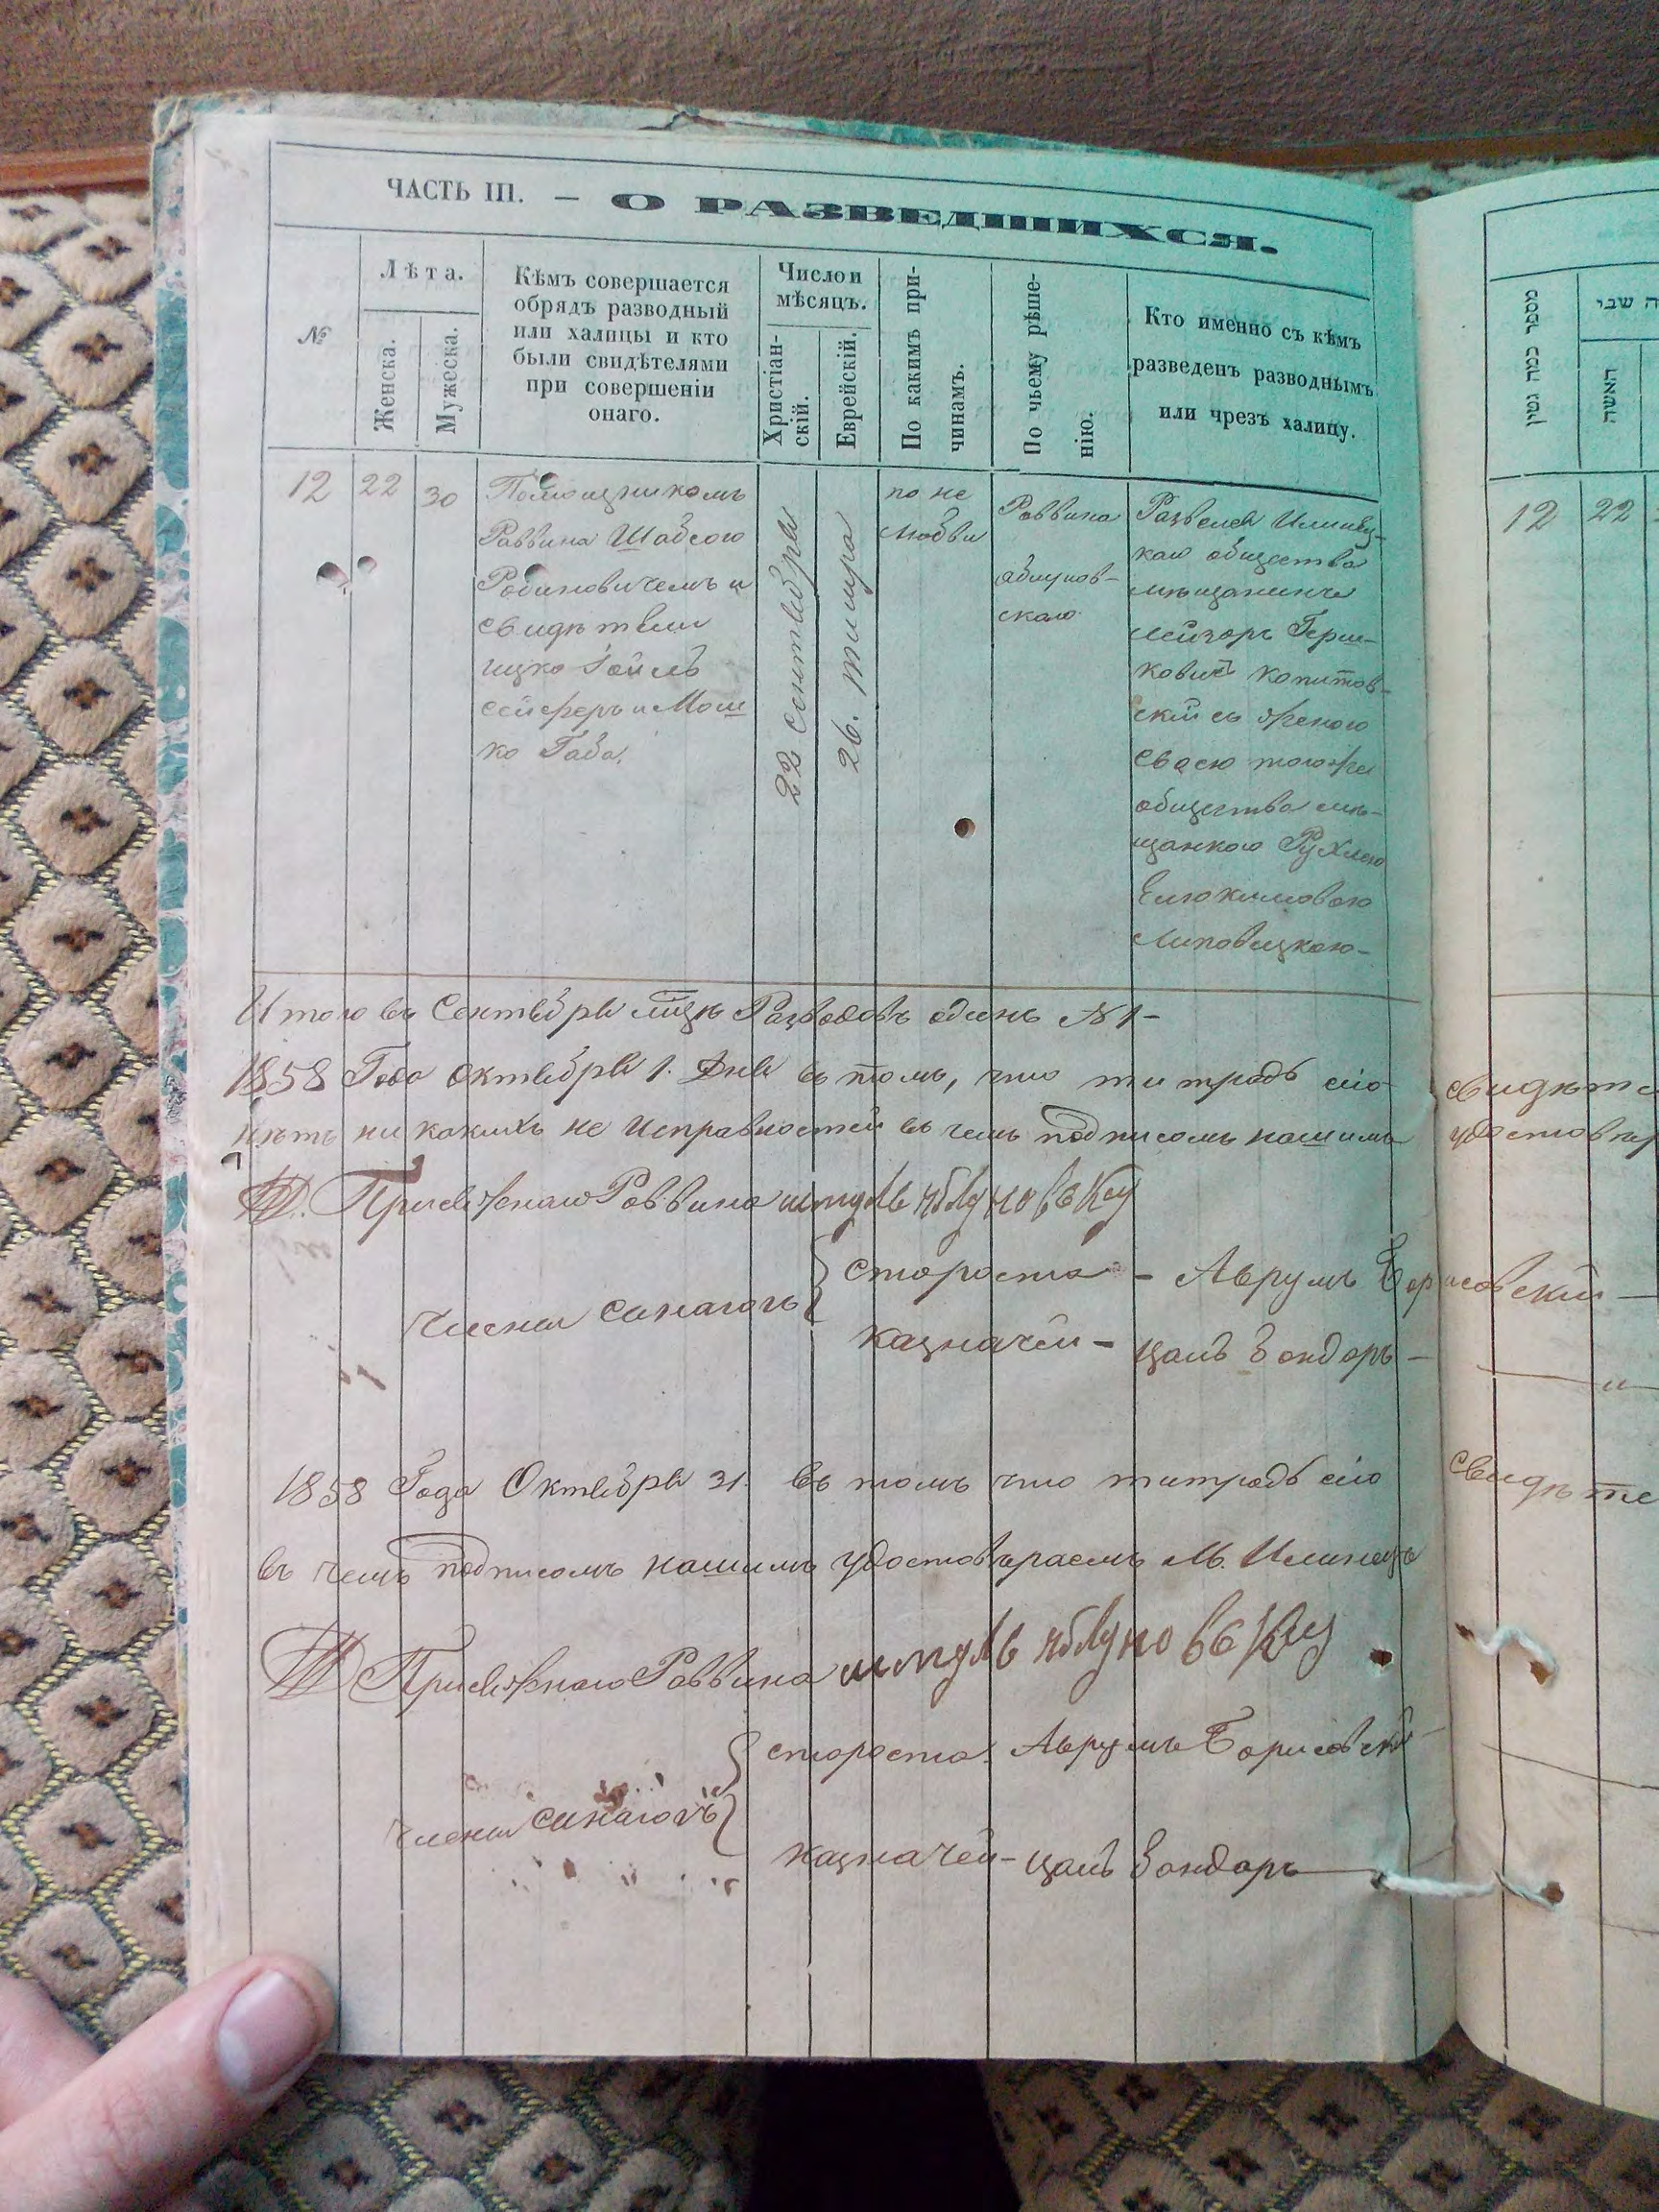 ЧАСТЬ III. — О РАЗВЕДШИХСЯ.
№
Лѣта.
Женска.
Мужеска.
Кѣмъ совершается
обрядъ разводный
или халицы и кто
были свидѣтелями
при совершеніи
онаго.
Число и
мѣсяцъ.
Христіан-
скій.
Еврейскій.
По какимъ при-
чинамъ.
По чьему рѣше-
нію.
Кто именно съ кѣмъ
разведенъ разводнымъ
или чрезъ халицу.
12
22
30
Помощникомъ
Раввина Шабсою
Рабиновичемъ и
свидѣтели
Мош
ко Габа.
22 сентября
26. тишра
по не
любви
Раввина
яблунов-
скаго
Развелся Илинец-
каго общества
мѣщанинъ
Лейзоръ Герш-
ковичъ Копитов-
скій съ женою
своею того же
общества мѣ-
щанкою Рухлею
Елюкимовою
Липовецкою -
Итого въ Сентября мцѣ Разводовъ одинъ № 1 -
1858 Года Октября 1. Дня въ томъ, что титрадъ сію
нѣтъ ни какихъ не исправностей въ чемъ подписомъ нашимъ
Присяжнаго Раввина шмуль яблуновски
Члены синагогъ
староста - Аврумъ Борисовскій -
казначей - Бондаръ -
1858 Года Октября 31. въ томъ что титрадъ сію
въ чемъ подписомъ нашимъ удостовѣраемъ М. Илинецъ
Присяжнаго Раввина шмуль яблуновски
Члены синагогъ
староста Аврумъ Борисовскій
казначей - Бондаръ
מספר כמה גטין
האשה
12
22